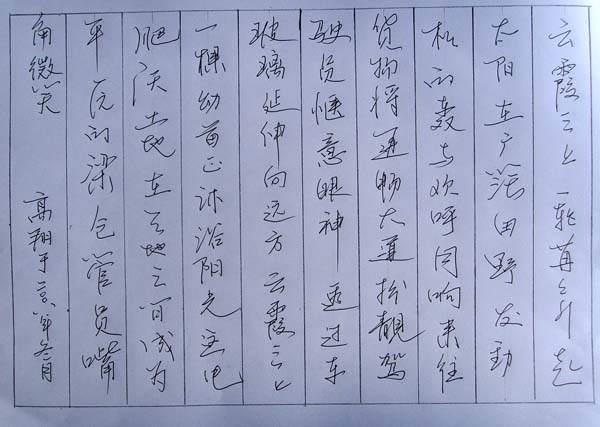 云霞之上 一轮苒々升起
太阳在广茫田野发动
机的轰与欢呼同响来往
货物将通畅大道扮靓驾
驶员惬意眼神 透过车
玻璃延伸向远方 云霞之上
一棵幼苗正沐浴阳光这片
肥沃土地在天地之间成为
平凡的梁仓管员嘴
角微笑 高翔于年冬月